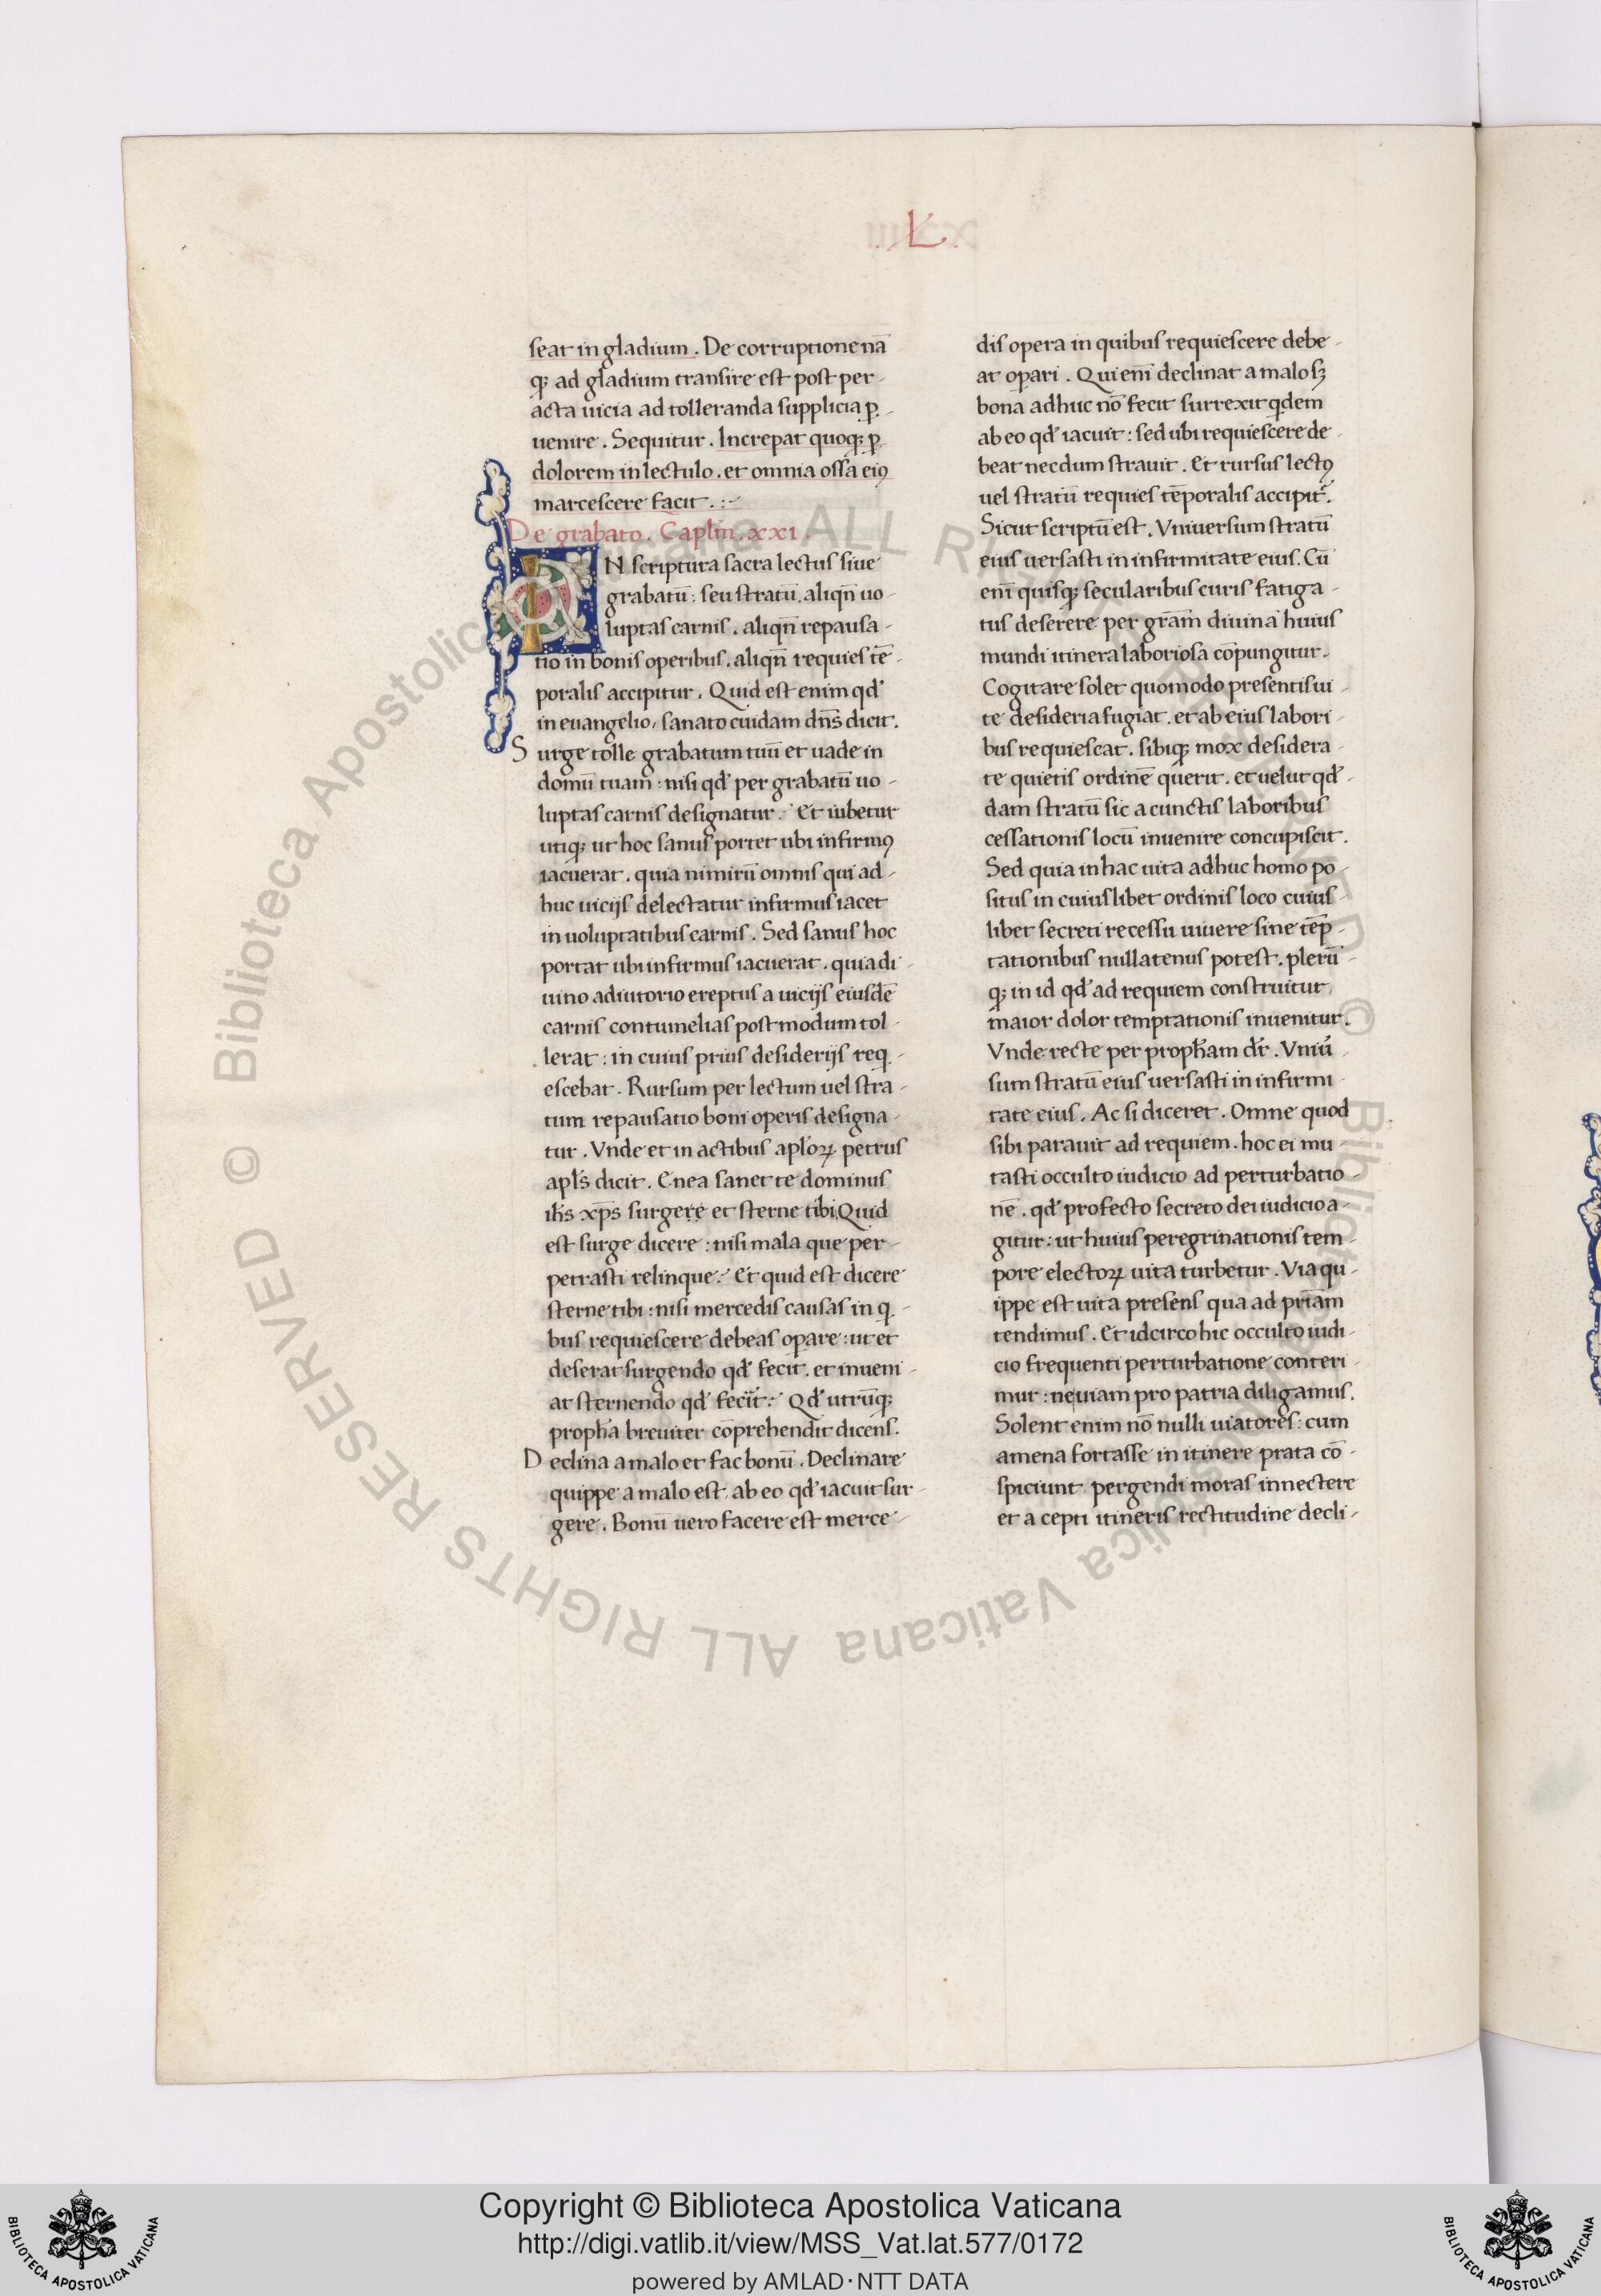 .L.
seat in gladium. De corruptione nā
q; ad gladium transire est post per-
acta uicia ad tolleranda supplicia p̲-
uenire. Sequitur. Increpat quoq; p̲
dolorem in lectulo. et omnia ossa eiꝰ
marcescere facit.:-
De grabato. Caplm̄.xxi.
IN scriptura sacra lectus siue
grabatū: seu stratū. aliqn̄ uo-
luptas carnis. aliqn̄ repausa-
tio in bonis operibus. aliqn̄ requies tē-
poralis accipitur. Quid est enim qd̓
in euangelio, sanato cuidam dn̄s dicit.
Surge tolle grabatum tuū et uade in
domū tuam: nisi qd̓ per grabatū uo-
luptas carnis designatur.' Et iubetur
utiq; ut hoc sanus portet ubi infirmꝰ
iacuerat. quia nimirū omnis qui ad-
huc uicijs delectatur infirmus iacet
in uoluptatibus carnis. Sed sanus hoc
portat ubi infirmus iacuerat. quia di-
uino adiutorio ereptus a uicijs eiusdē
carnis contumelias postmodum tol-
lerat: in cuius prius desiderijs req̲-
escebat. Rursum per lectum uel stra-
tum repausatio boni operis designa-
tur. Vnde et in actibus apl̓oꝝ petrus
apl̓s dicit. Enea sanet te dominus
ih̄s xp̄s surgere et sterne tibi. Quid
est surge dicere: nisi mala que per-
petrasti relinque.' Et quid est dicere
sterne tibi: nisi mercedis causas in q̲-
bus requiescere debeas opare: ut et
deserat surgendo qd̓ fecit. et inueni-
at sternendo qd̓ fecīt.' Qd̓ utrūq;
proph̄a breuiter cōprehendit dicens.
Declina a malo et fac bonū. Declinare
quippe a malo est, ab eo qd̓ iacuit sur-
gere. Bonū uero facere est merce-
dis opera in quibus requiescere debe-
at opari. Qui eni̅ declinat a malo sꝫ
bona adhuc nō fecit surrexit qdem
ab eo qd̓ iacuit: sed ubi requiescere de-
beat necdum strauit. Et rursus lectꝰ
uel stratū requies tēporalis accipit̓.
Sicut scriptū est. Vniuersum stratū
eius uersasti in infirmitate eius. Cū
eni̅ quisq; secularibus curis fatiga-
tus deserere per gram̄ diuinā huius
mundi itinera laboriosa cōpungitur.
Cogitare solet quomodo presentis ui-
te desideria fugiat. et ab eius labori-
bus requiescat. sibiq; mox desidera-
te quietis ordinē querit. et uelut qd̓-
dam stratū sic a cunctis laboribus
cessationis locū inuenire concupiscit.
Sed quia in hac uita adhuc homo po-
situs in cuiuslibet ordinis loco cuius-
libet secreti recessu uiuere sine tēp-
tationibus nullatenus potest. plerū-
q; in id qd̓ ad requiem construitur,
maior dolor temptationis inuenitur.
Vnde recte per proph̄am dr̄. Vniū-
sum stratū eius uersasti in infirmi-
tate eius. Ac si diceret. Omne quod
sibi parauit ad requiem. hoc ei mu-
tasti occulto iudicio ad perturbatio-
nē. qd̓ profecto secreto dei iudicio a-
gitur: ut huius peregrinationis tem-
pore electoꝝ uita turbetur. Via qu-
ippe est uita presens qua ad pr̄iam
tendimus. Et idcirco hic occulto iudi-
cio frequenti perturbatione conteri-
mur: ne uiam pro patria diligamus.
Solent enim nō nulli uiatores: cum
amena fortasse in itinere prata cō-
spiciunt, pergendi moras innectere
et a cepti itineris rectitudine decli-
© Biblioteca Apostolica Vaticana ALL RIGHTS RESERVED
Copyright © Biblioteca Apostolica Vaticana
http://digi.vatlib.it/view/MSS_Vat.lat.577/0172
powered by AMLAD·NTT DATA
BIBLIOTECA APOSTOLICA VATICANA
BIBLIOTECA APOSTOLICA VATICANA